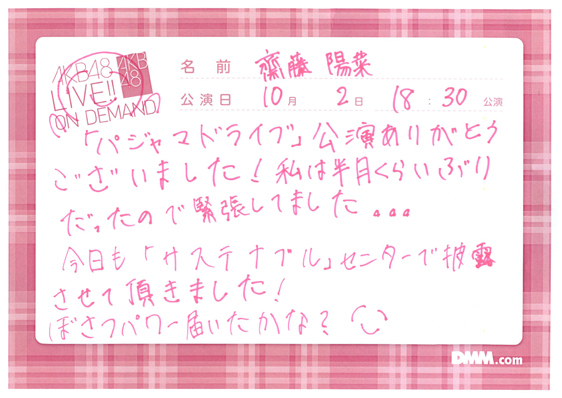 AKB48
LIVE!!
ON DEMAND
AKB
48
名前 齋藤 陽菜
公演日 10月 2日 18:30 公演
「パジャマドライブ」公演ありがとう
ございました！私は半月くらいぶり
だったので緊張してました...
今日も「サステナブル」センターで披露
させて頂きました！
ぼさつパワー届いたかな？
DMM.com